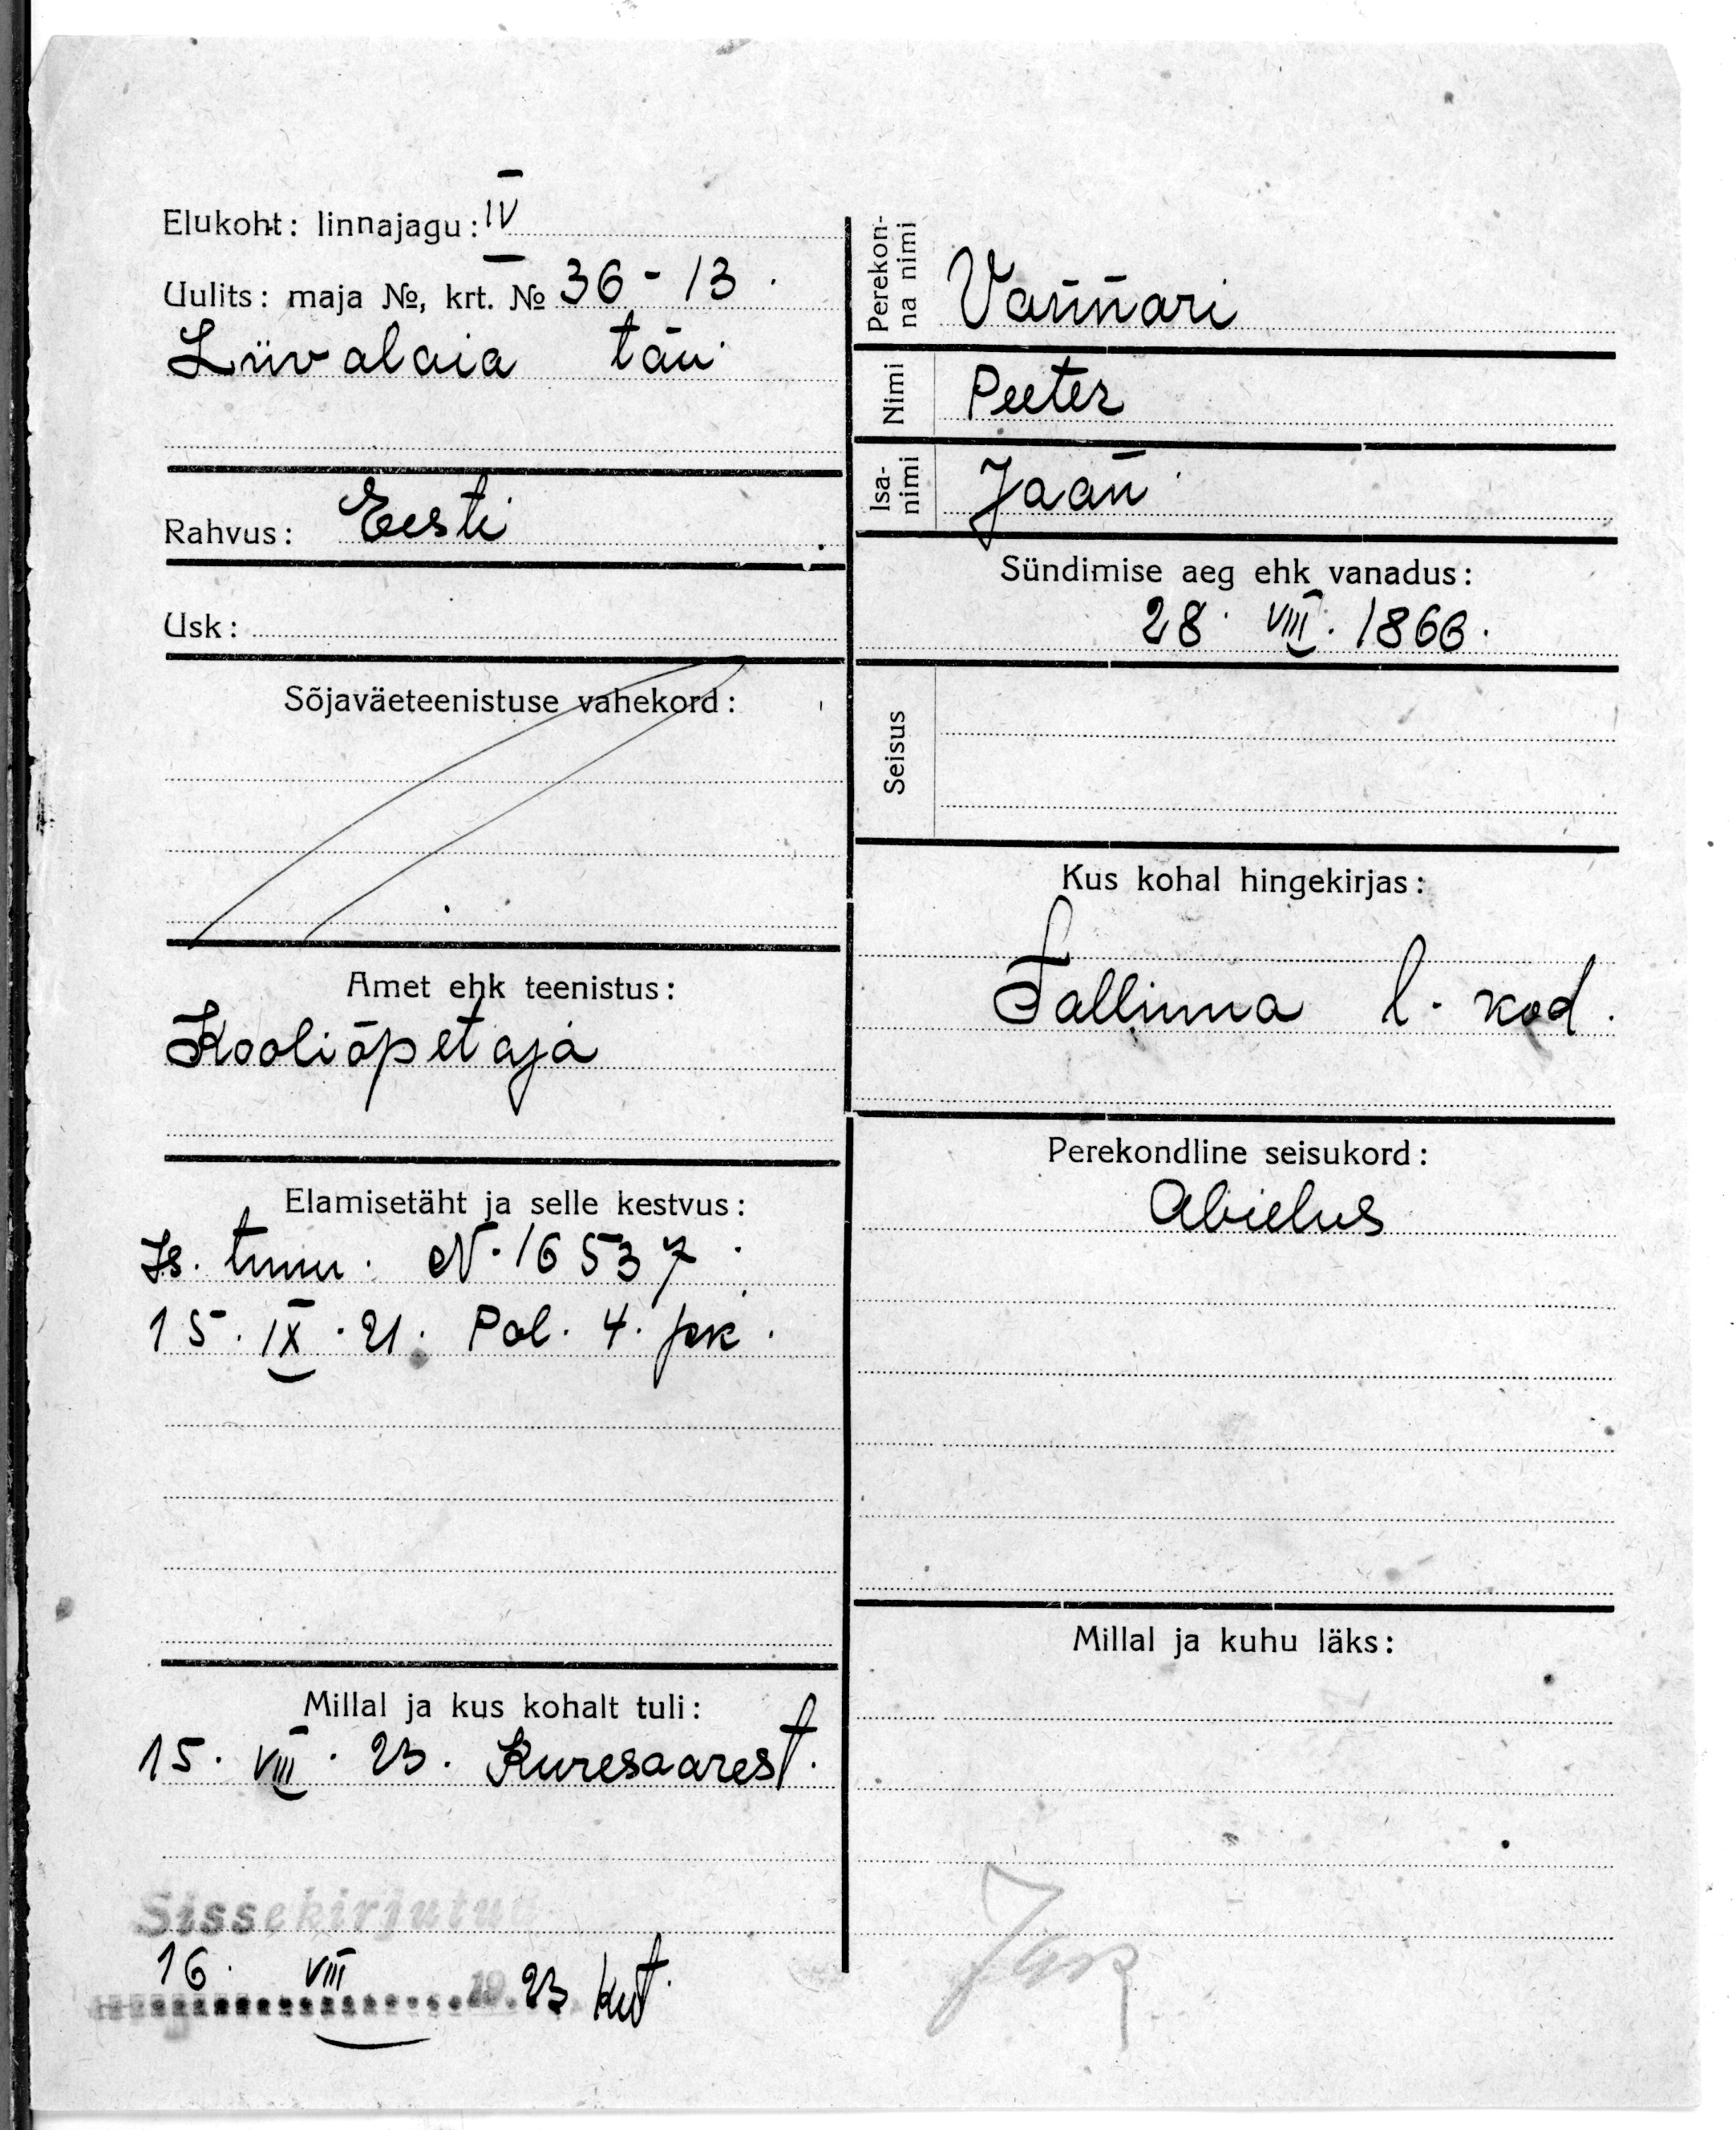 Elukoht: linnajagu: IV
Uulits: maja №, krt. № 36 - 13.
Liivalaia tän.
Rahvus: Eesti
Usk:
Sõjaväeteenistuse vahekord:
Amet ehk teenistus:
Kooliõpetaja
Elamisetäht ja selle kestvus:
Is. tunn. N. 16537.
15. IX. 21. Pol. 4. jsk.
Millal ja kus kohalt tuli:
15. VIII. 23. Kuresaarest.
Sissekirjutud
16. VIII 19 23
Perekon-
na nimi
Vannari
Nimi Peeter
Isa-
nimi
Jaan
Sündimise aeg ehk vanadus:
28. VIII. 1866.
Seisus
Kus kohal hingekirjas:
Tallinna l. kod.
Perekondline seisukord:
Abielus
Millal ja kuhu läks: